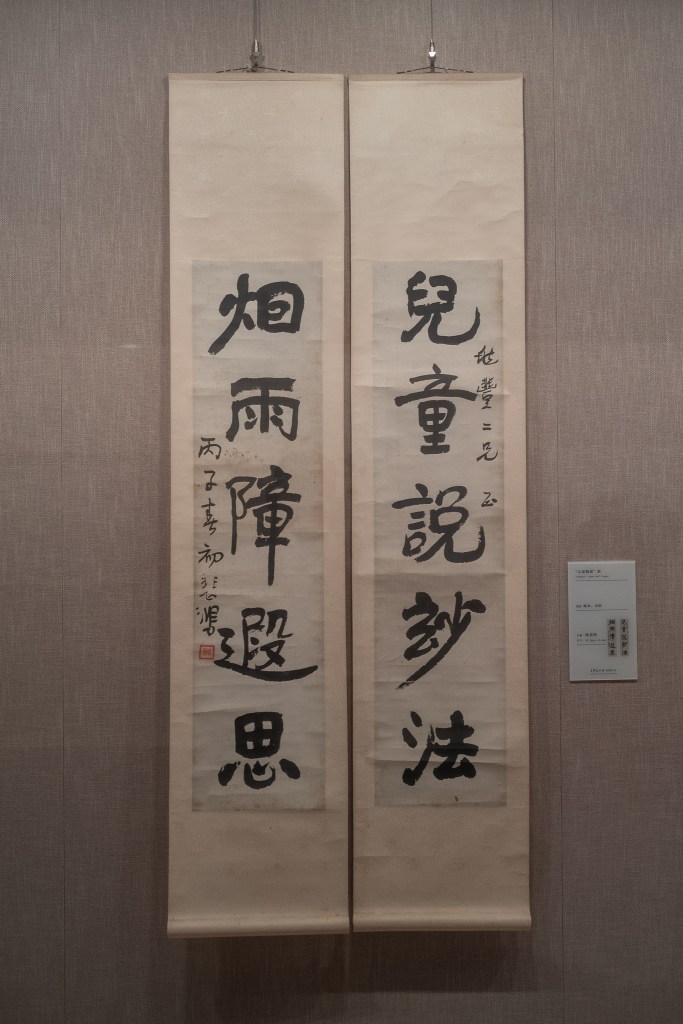 兒童說玅法
豐二兄 正
烟雨障遐思
丙子春初悲鴻